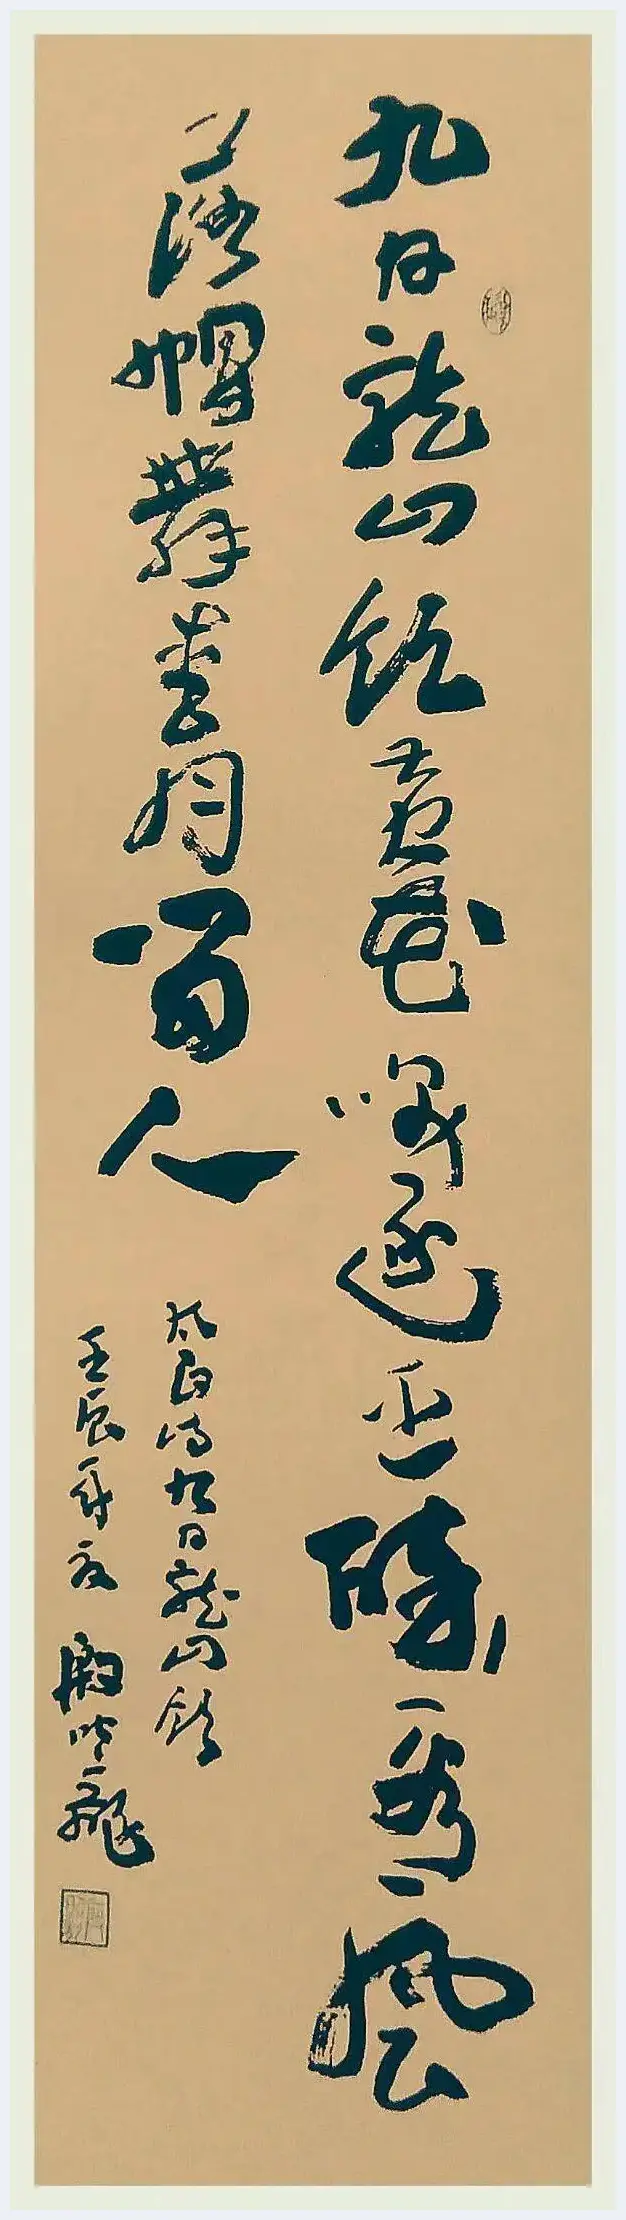 九日龍山飲黃花笑逐臣醉看風
落帽舞愛月留人
太白詩九日龍山飲
壬辰年夏